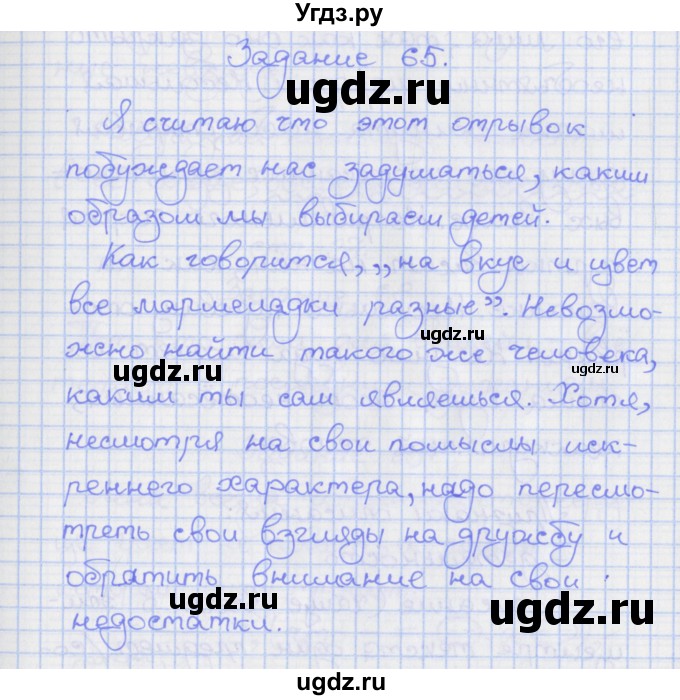 Угдз.ру
Задание 65.
ugdz.ru
Я считаю что этот отрывок
побуждает нас задуматься, каким
образом мы выбираем детей.
Как говорится, „на вкус и цвет
все мармеладки разные”. Невозмо-
ugdz.ru
жно найти такого же человека,
ugdz.ru
ugdz.ru
каким ты сам являешься. Хотя,
несмотря на свои помыслы иск-
реннего характера, надо пересмо-
треть свои взгляды на дружбу и
обратить внимание на свои
ugdz.ru
ugdz.ru
недостатки.
ugdz.ru